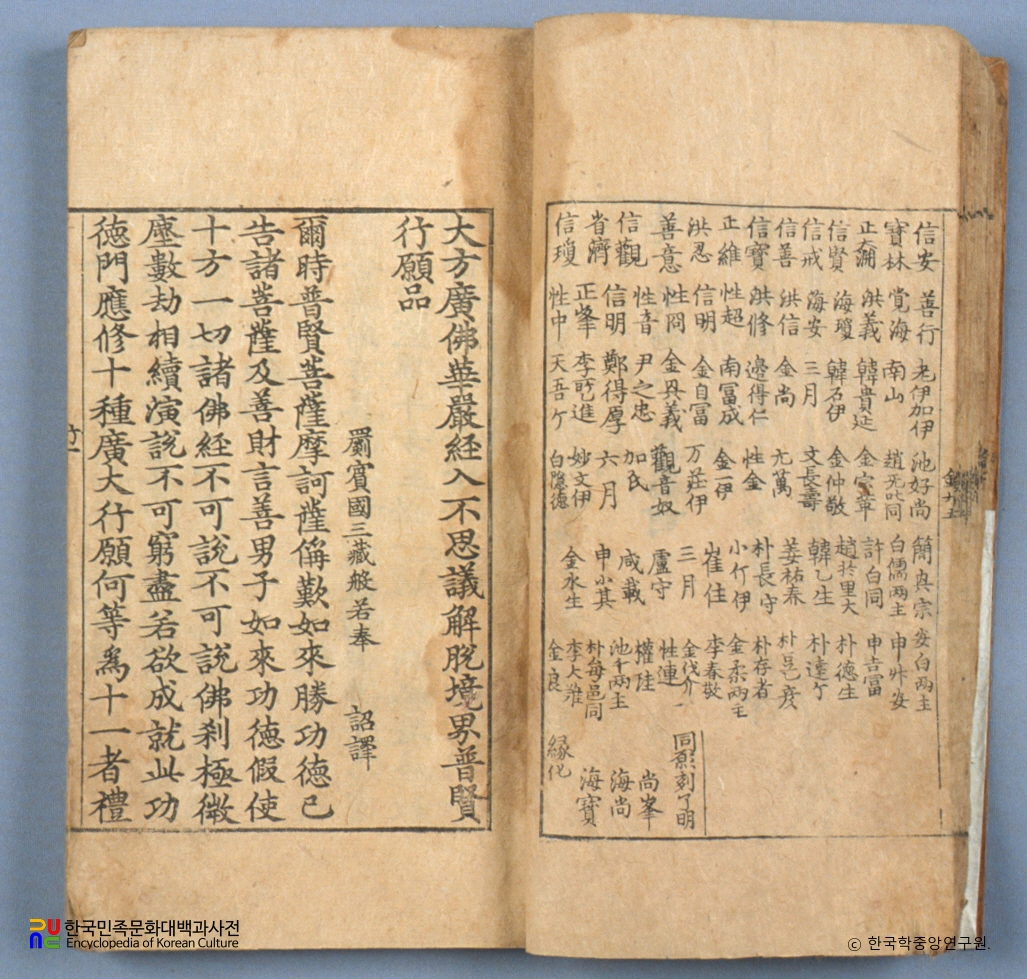 信安 善行 老伊加伊 池好尚 簡眞宗 安白兩主
寶林 覺海 南山 趙元吐同 白儒兩主 申升安
正 洪義 韓貴延 金 許白同 申吉冨
信賢 海瓊 韓石伊 金仲敬 趙於里大 朴德生
信戒 海安 三月 文長壽 韓乙生 朴達
信善 洪信 金尚 萬 姜祐 朴
信寶 洪修 邊得仁 性金 朴長守 朴存者
正維 性超 南冨成 金一伊 小斤伊 金柔兩主
洪忍 信明 金自冨 万莊伊 崔佳 李春敬
善意 性冏 金 義 觀音奴 三月 金伐介 同願刻了明
信觀 性音 尹之忠 加氏 盧守 性連
省濟 信明 鄭得厚 六月 咸載 權陸 尚峯
信瓊 正峯 李 進 妙文伊 申小其 池千兩主 海尚
性中 天吾 白隱德 金水生 朴每邑同 海寶
李大難
金良 緣化
大方廣佛華嚴経入不思議解脫境界普賢
行願品
罽賓國三藏般若奉 詔譯
爾時普賢菩薩摩訶薩偁歎如來勝功德已
告諸菩薩及善財言善男子如來功德假使
十方一切諸佛経不可說不可說佛刹極微
塵數劫相續演說不可窮盡若欲成就此功
德門應修十種廣大行願何等爲十一者禮
한국민족문화대백과사전
Encyclopedia of Korean Culture
© 한국학중앙연구원.